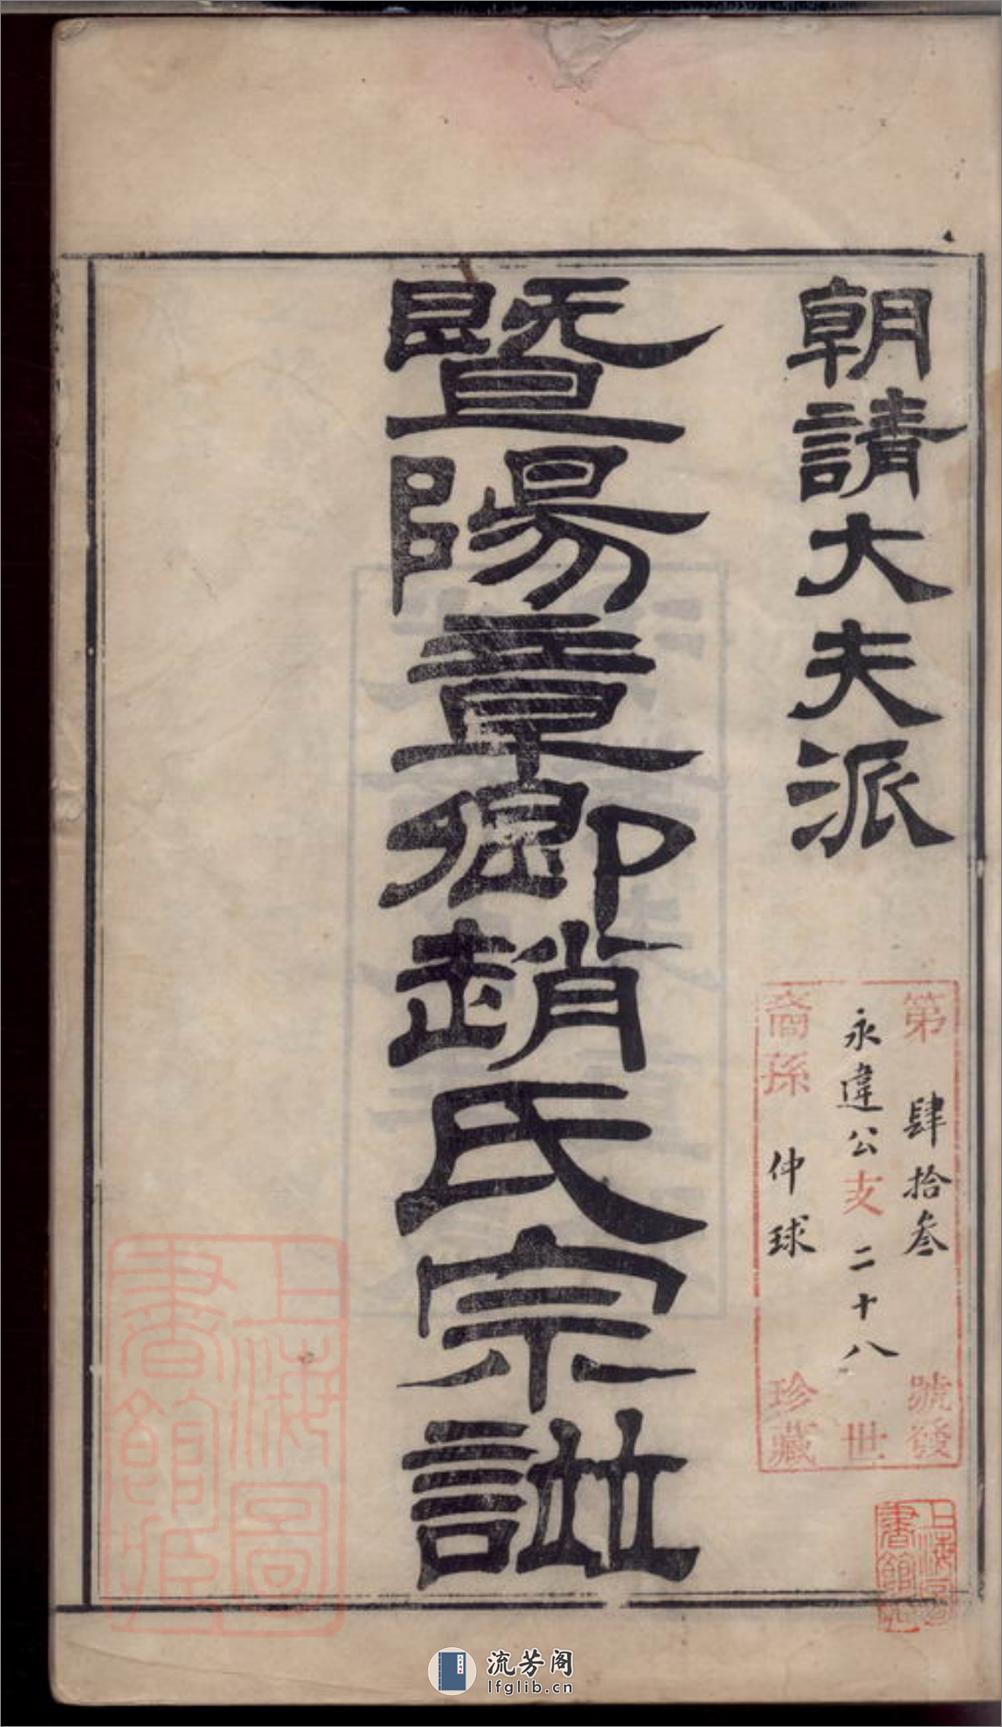 朝請大夫派
暨陽章卿趙氏宗譜
第肆拾叁號發
永違公支二十八世
裔孫仲球珍藏
上海圖
書館藏
上海圖
書館藏
流芳阁
lfglib.cn